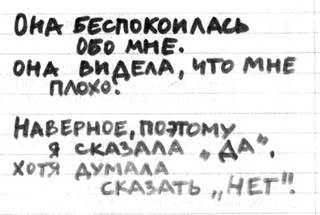 ОНА БЕСПОКОИЛАСЬ
ОБО МНЕ.
ОНА ВИДЕЛА, ЧТО МНЕ
ПЛОХО.
НАВЕРНОЕ, ПОЭТОМУ
Я СКАЗАЛА „ДА",
ХОТЯ ДУМАЛА
СКАЗАТЬ „НЕТ".